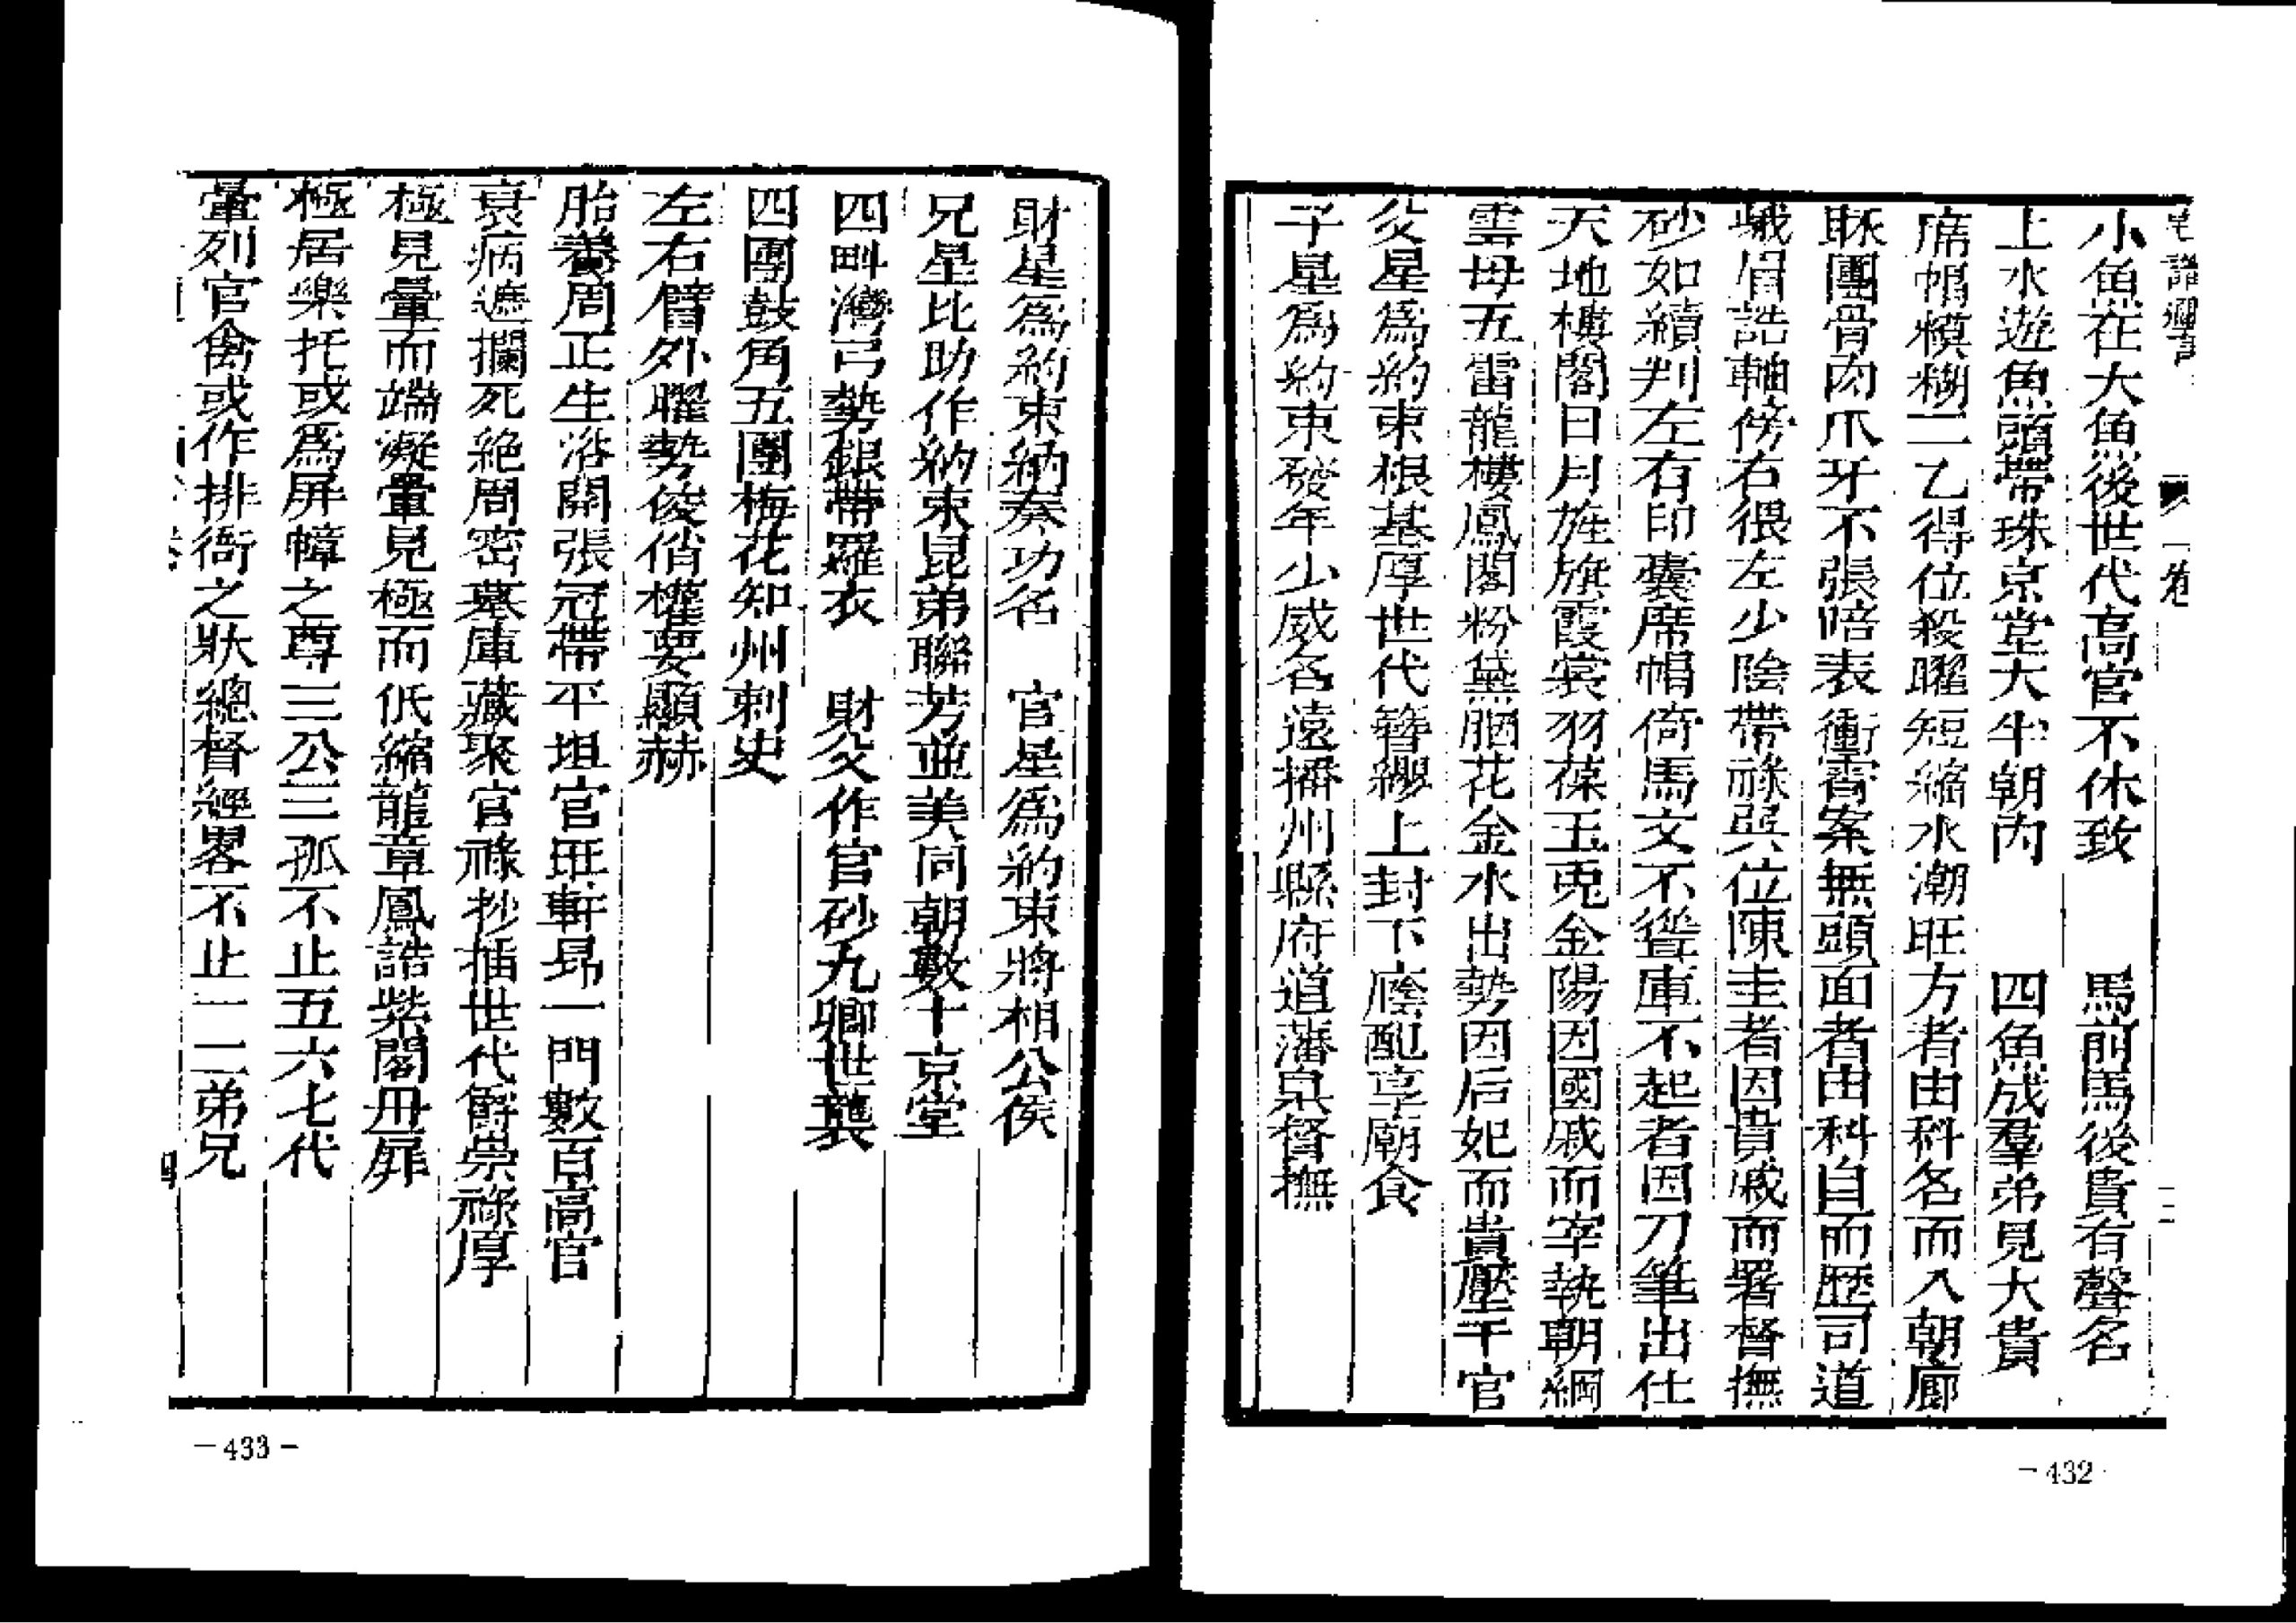 卷一
二
小魚在大魚後世代高官不休致　馬前馬後貴有聲名
上水遊魚頭帶珠京堂大半朝內　四魚成羣弟見大貴
席帽模糊二乙得位殺曜短縮水潮旺方者由科名而入朝廊
眠團骨肉爪牙不張暗表衝霄案無頭面者由科目而歷司道
蛾眉誥軸傍右偎左少陰帶祿巽位陳圭者因貴戚而署督撫
砂如續判左右印囊席帽倚馬文不聳庫不起者因刀筆出仕
天地樓閣日月旌旗霞裳羽葆玉兎金陽因國戚而宰執朝綱
雲母五雷龍樓鳳閣粉黛胭花金水出勢因后妃而貴壓千官
父星爲約束根基厚世代簪纓上封下廕配享廟食
子星爲約束發年少威名遠播州縣府道藩臬督撫
－432
財星爲約束納奏功名　官星爲約束將相公侯
兄星比助作約束昆弟聯芳並美同朝數十京堂
四畔灣弓勢銀帶羅衣　財父作官砂九卿世襲
四團鼓角五團梅花知州刺史
左右臂外曜勢俊俏權要顯赫
胎養周正生浴開張冠帶平坦官旺軒昂一門數百高官
衰病遮攔死絕周密墓庫藏聚官祿抄插世代爵崇祿厚
極見暈而端凝暈見極而低縮龍章鳳誥紫閣丹扉
極居樂托或爲屏幛之尊三公三孤不止五六七代
暈列官禽或作排衙之狀總督經畧不止一二弟兄
四
－433－